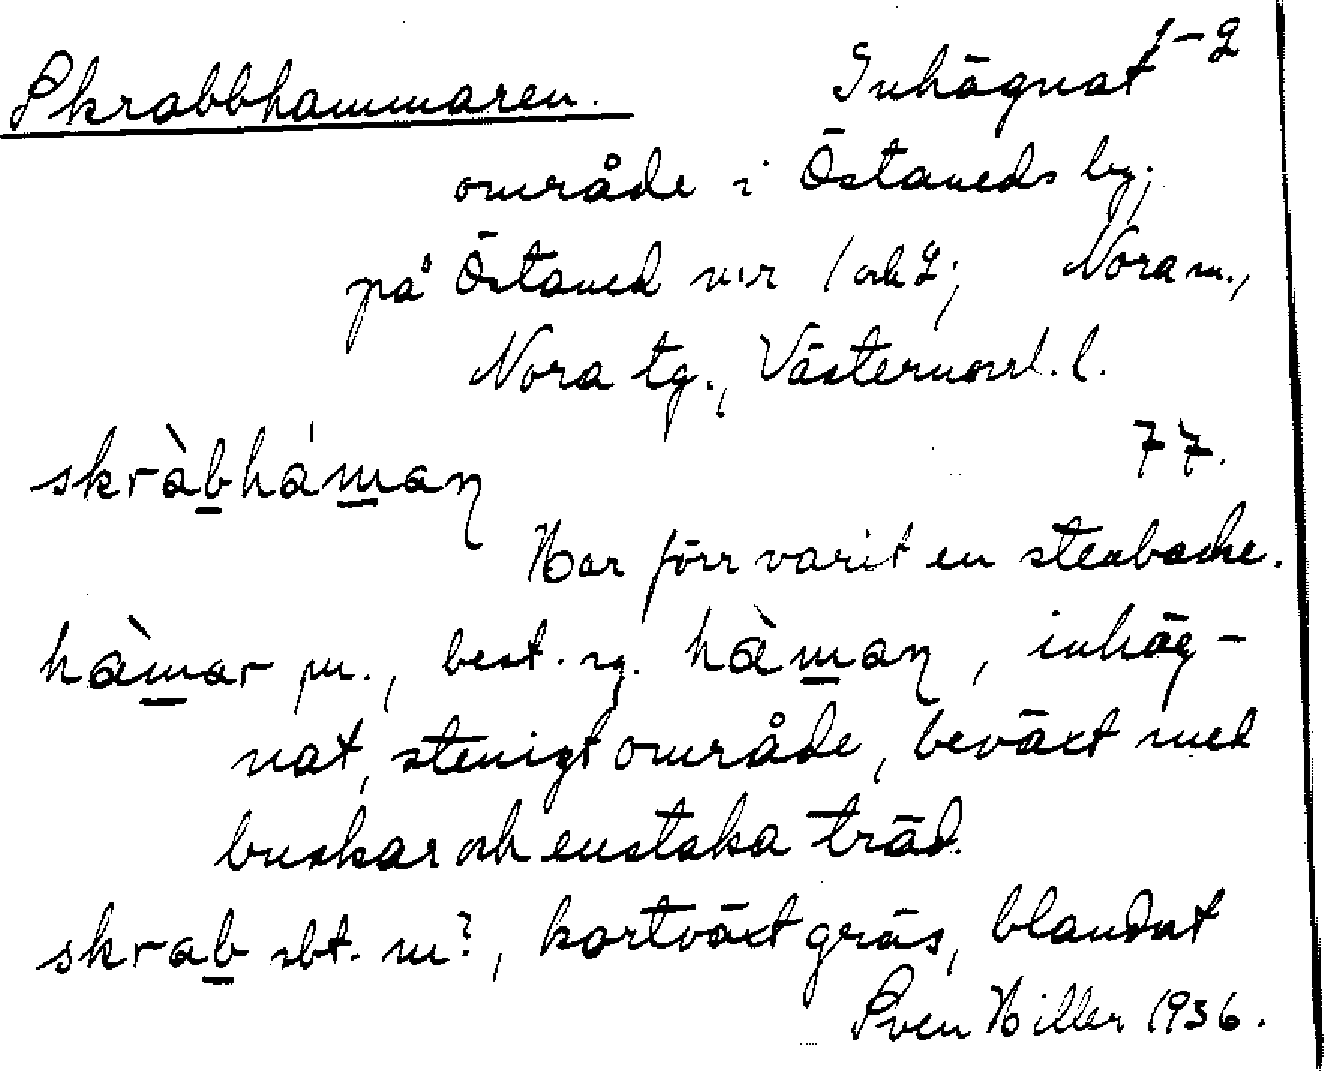 1-2
Skrabbhammaren. Inhägnat
område i Östaneds by;
på Östaned n:r 1 och 2; Nora sn.,
Nora tg., Västernorrl. l.
skràb̲hám̲aɳ 77.
Har förr varit en stenbacke.
hàm̲ar m., best. sg. hàm̲aɳ, inhäg-
nat, stenigt område, beväxt med
buskar och enstaka träd.
skrab̲ sbt. m?, kortväxt gräs, blandat
Sven Hiller 1936.